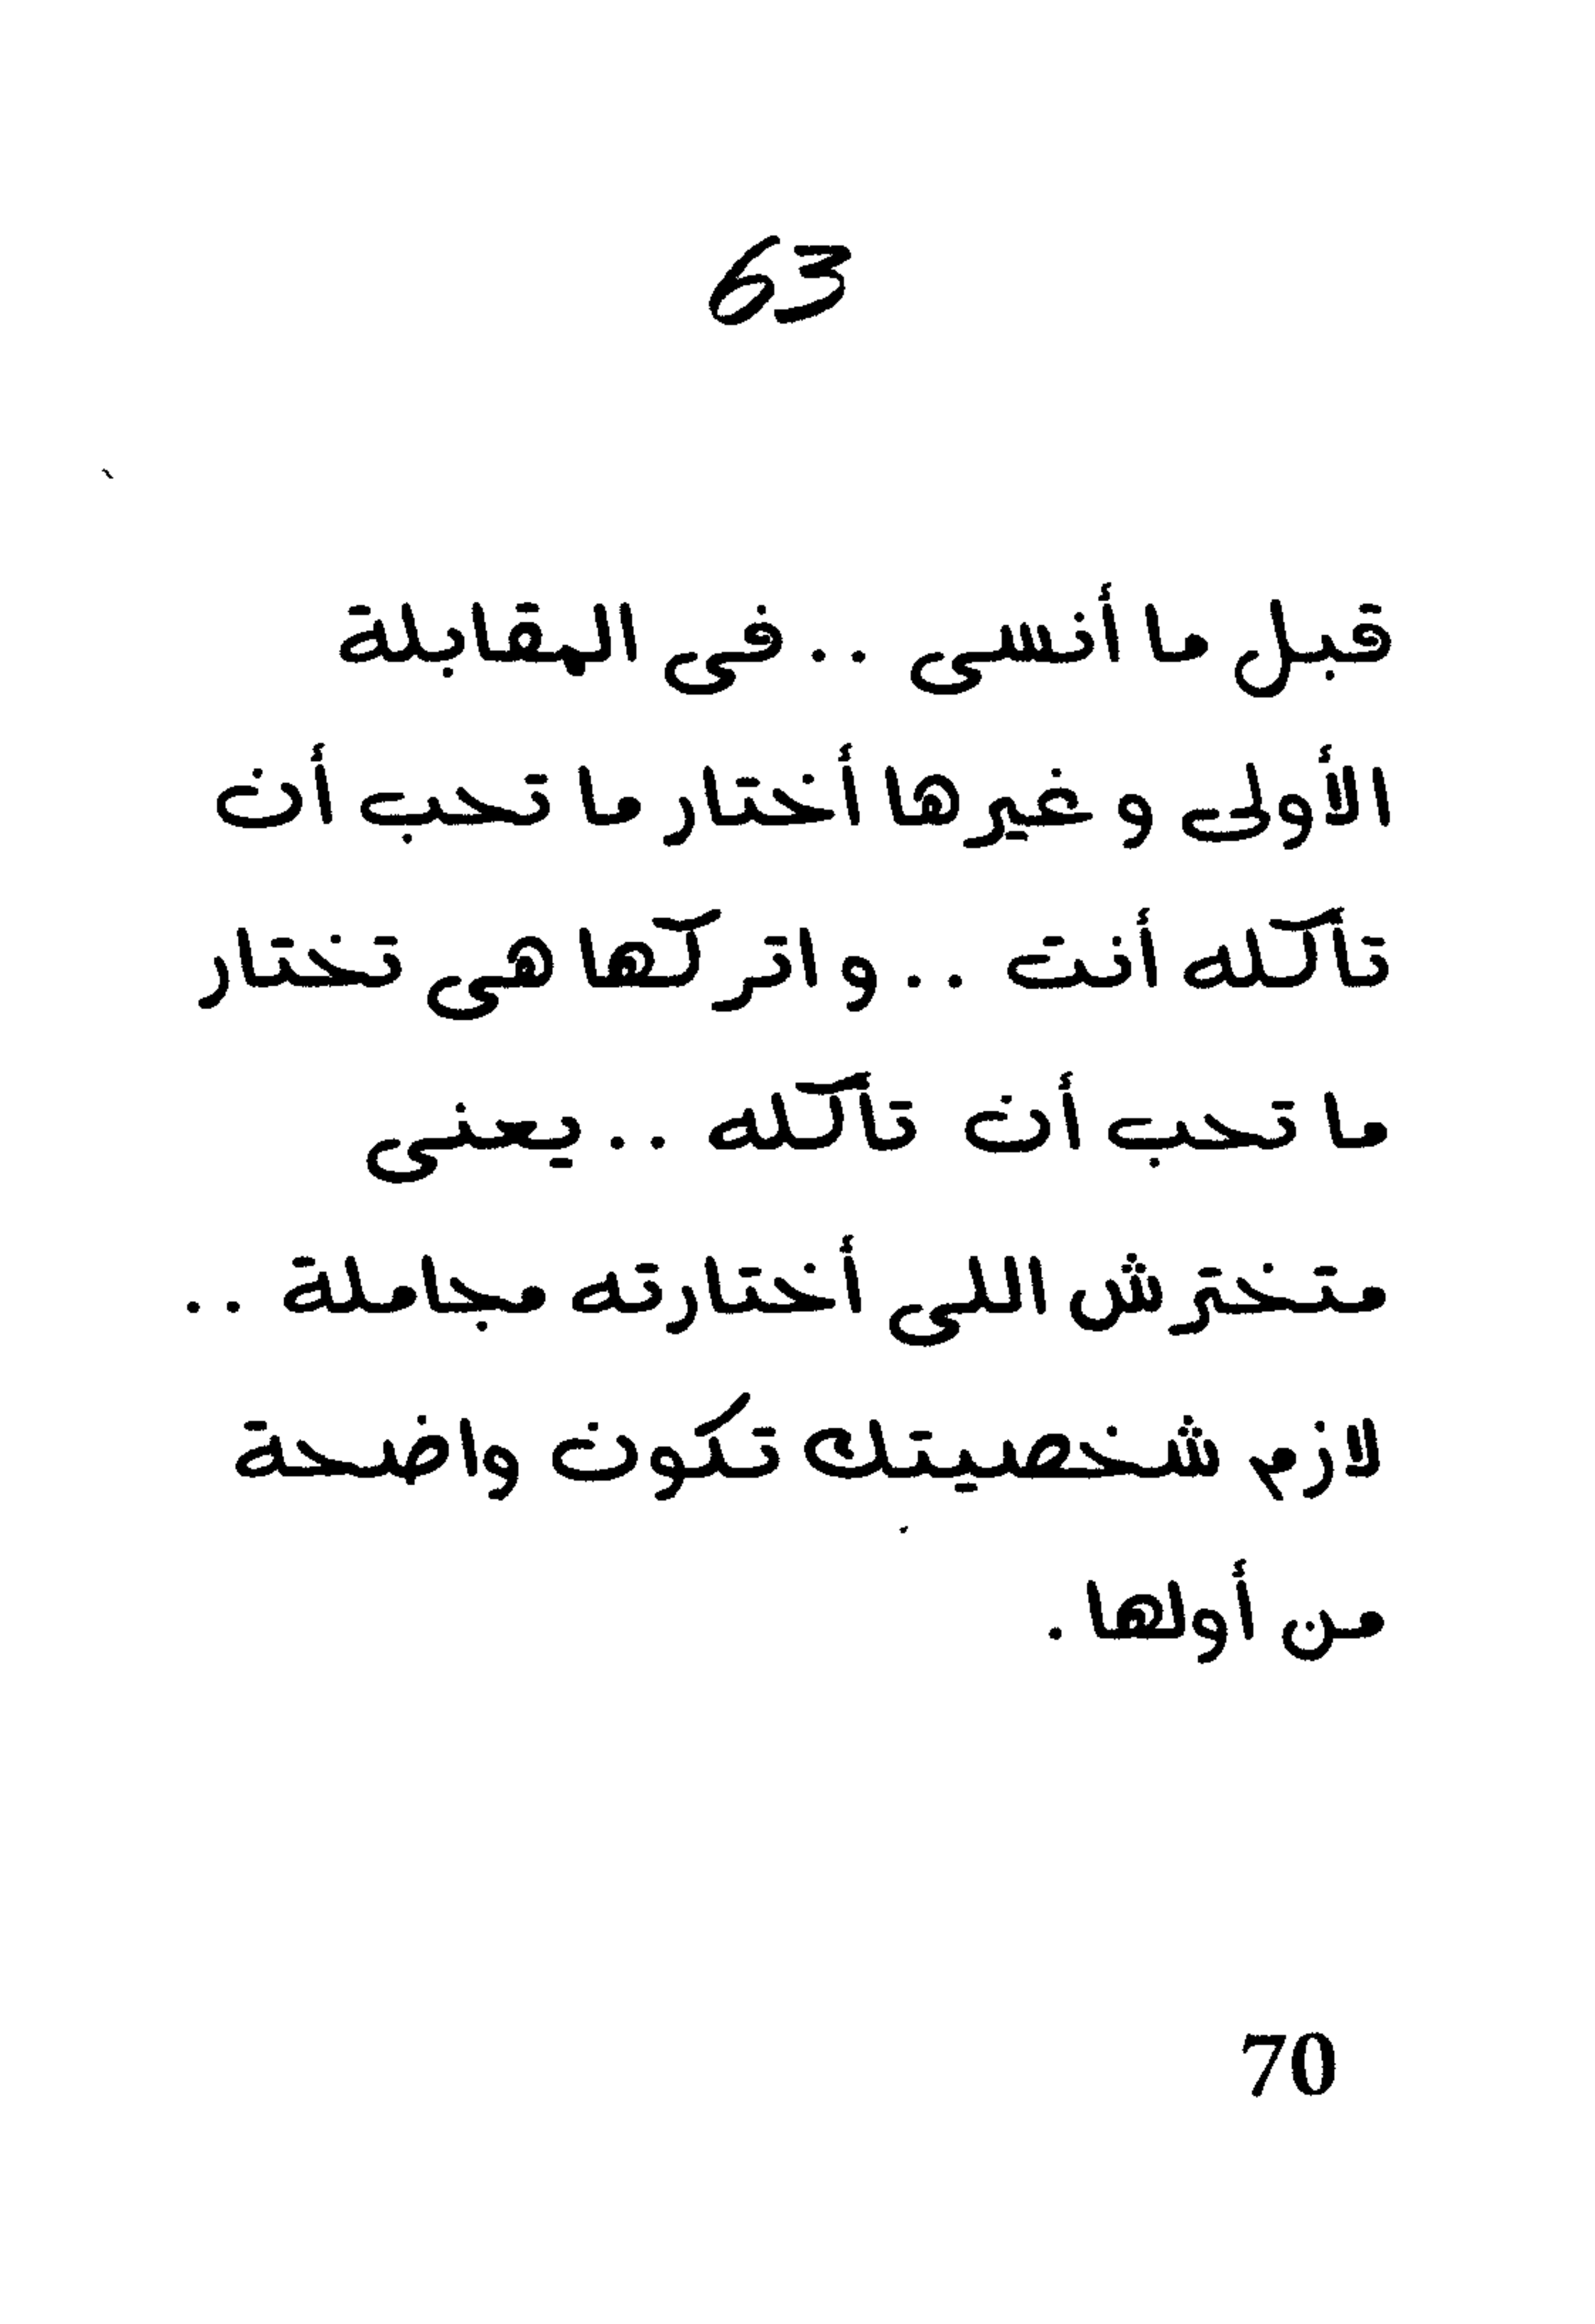 63
قبل ما أنسى .. فى المقابلة
الأولى و غيرها أختار ما تحب أن
تأكله أنت .. و اتركها هى تختار
ما تحب أن تأكله .. يعنى
متخترش اللى أختارته مجاملة ..
لازم شخصيتك تكون واضحة
من أولها .
70